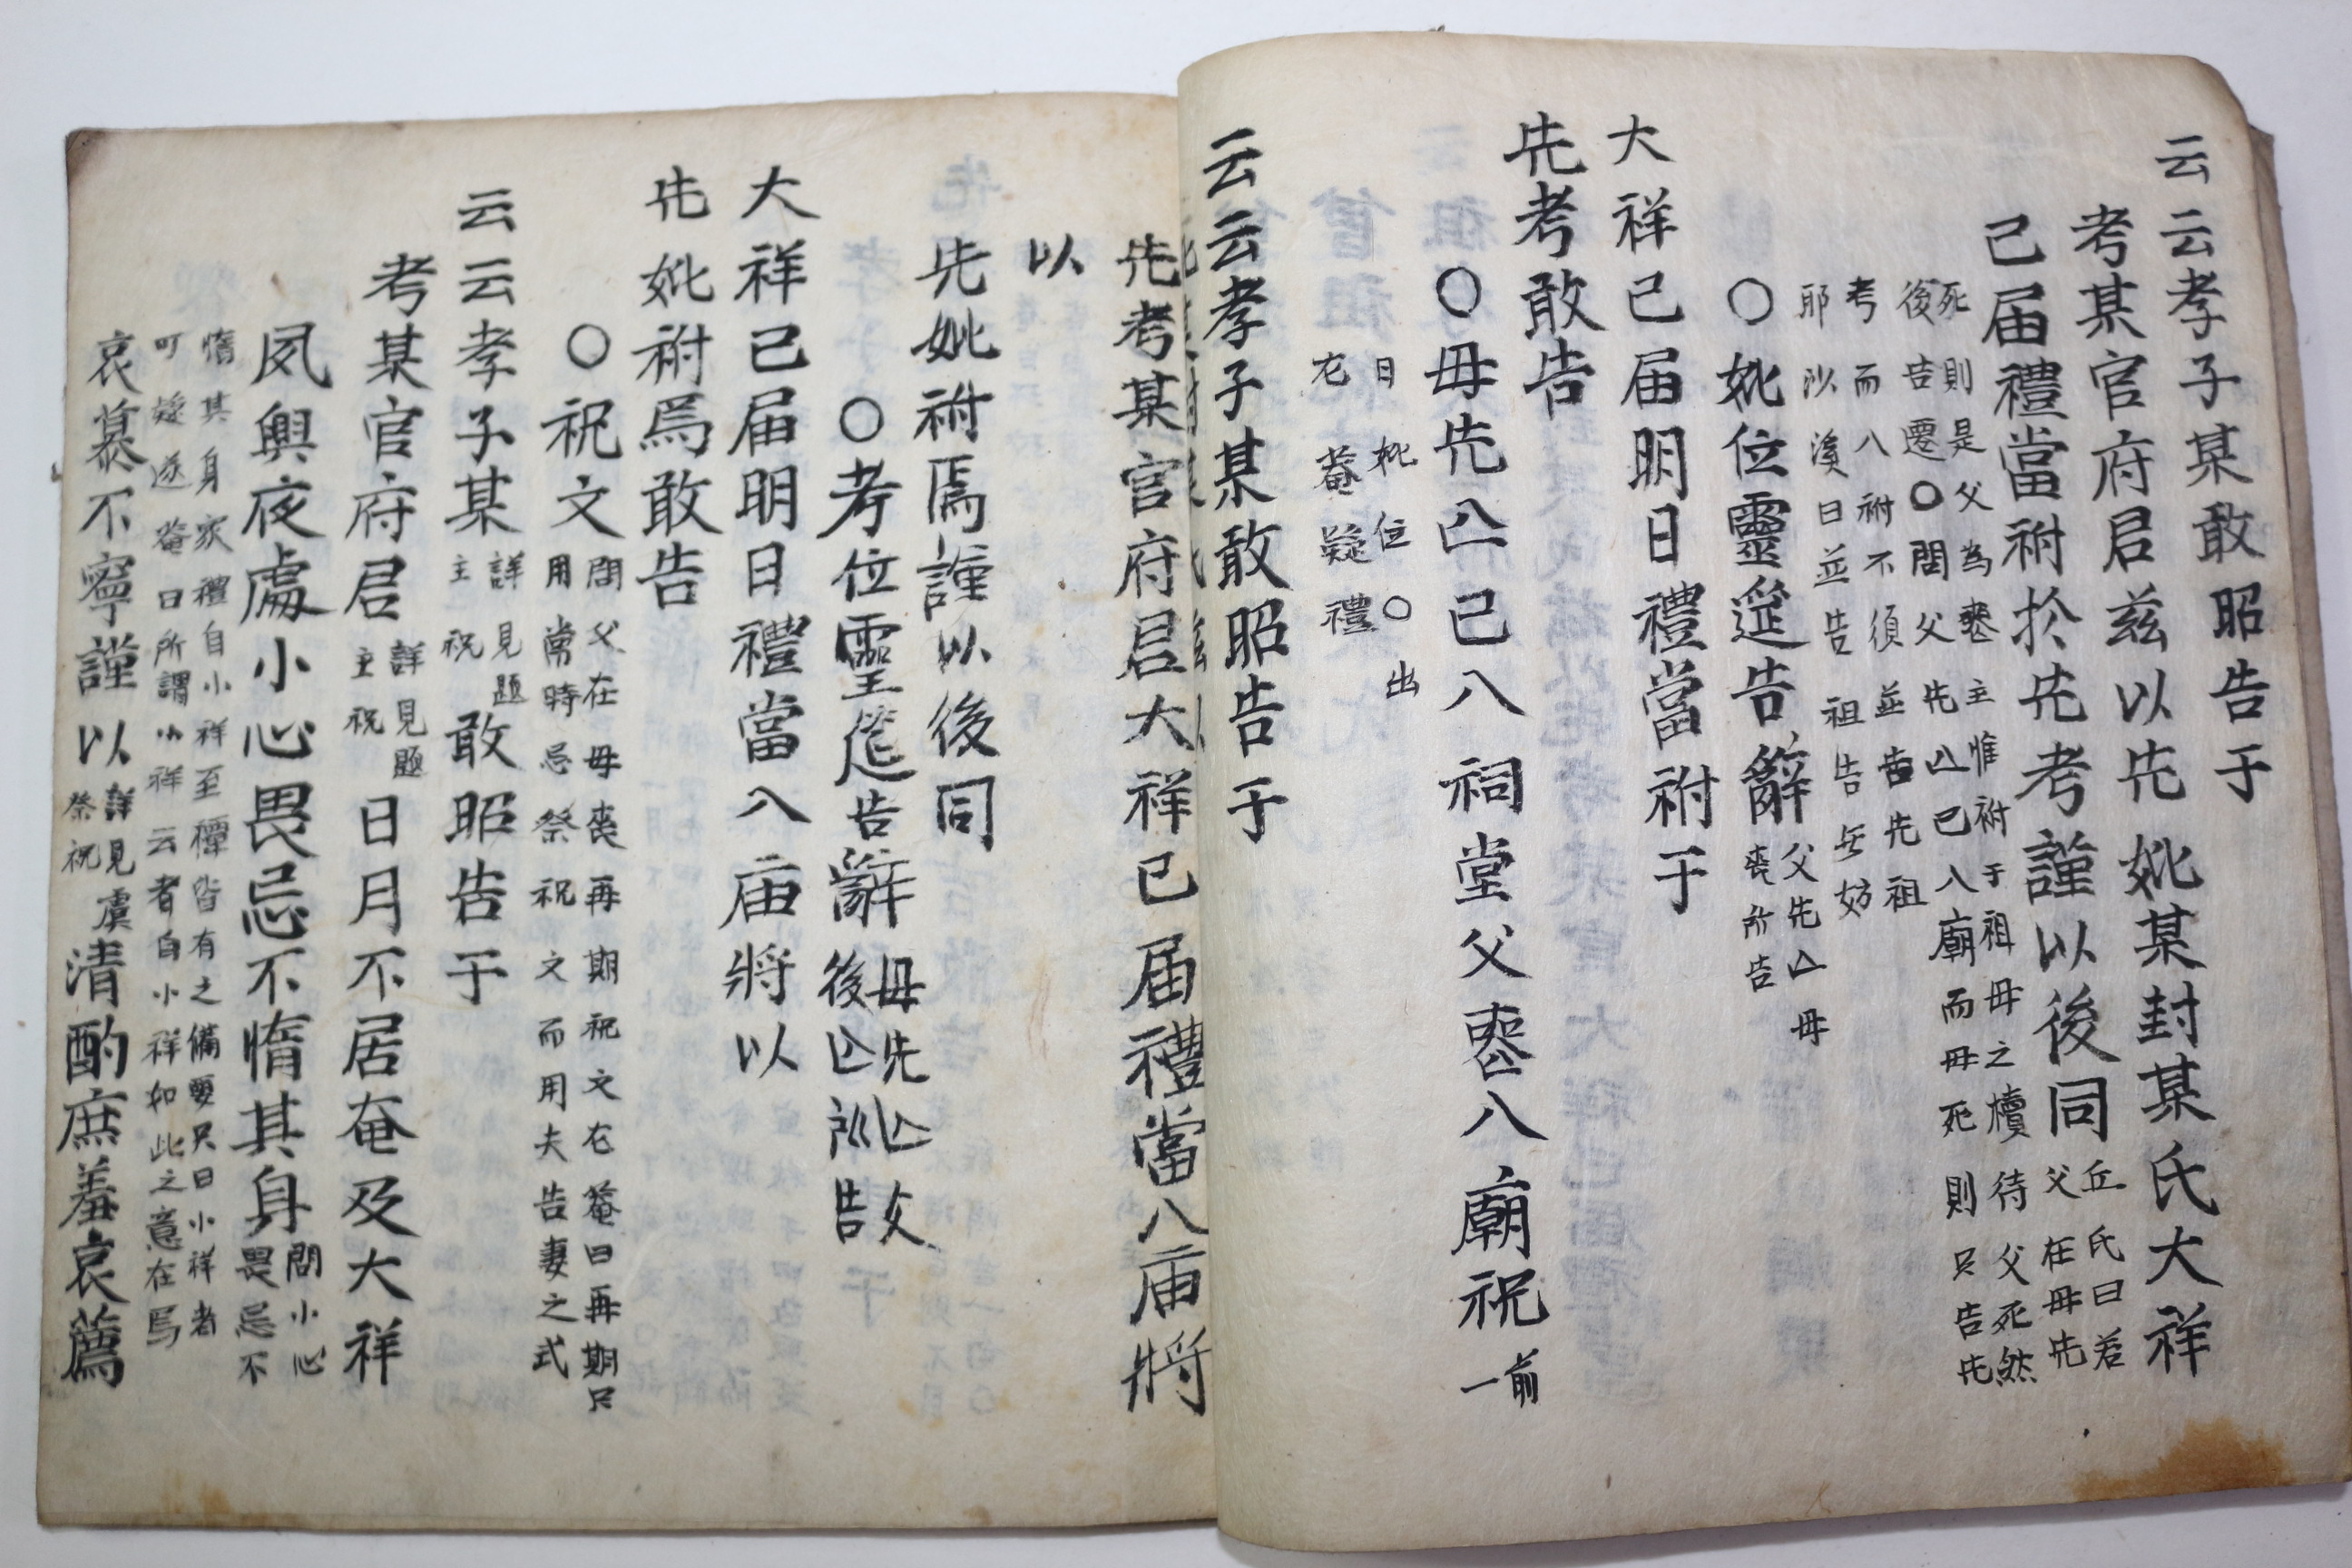 云云孝子某敢昭告于
考某官府君茲以先妣某封某氏大祥
已届禮當祔於先考謹以後同
丘氏曰若
父在母先
死則是父為喪主惟祔于祖母之櫝待父死然
後告遷○問父先亾已入廟而母死則只告先
考而入祔不須並告先祖
耶沙溪曰並告祖告無妨
○妣位靈筵告辭
父先亾母
喪所告
大祥已届明日禮當祔于
先考敢告
○母先亾已入祠堂父喪入廟祝
前
一
日妣位○出
尤菴疑禮
云云孝子某敢昭告于
先考某官府君大祥已届禮當入庙將
以
先妣祔焉謹以後同
○考位靈筵告辭
母先亾父
後亾所告
大祥已届明日禮當入庙將以
先妣祔焉敢告
○祝文
問父在母喪再期祝文尤菴曰再期只
用常時忌祭祝文而用夫告妻之式
云云孝子某
詳見題
主祝
敢昭告于
考某官府君
詳見題
主祝
日月不居奄及大祥
夙興夜處小心畏忌不惰其身
問小心
畏忌不
惰其身家禮自小祥至禫皆有之備要只曰小祥者
可疑遂菴曰所謂小祥云者自小祥如此之意在焉
哀慕不寧謹以
詳見虞
祭祝
清酌庶羞哀薦